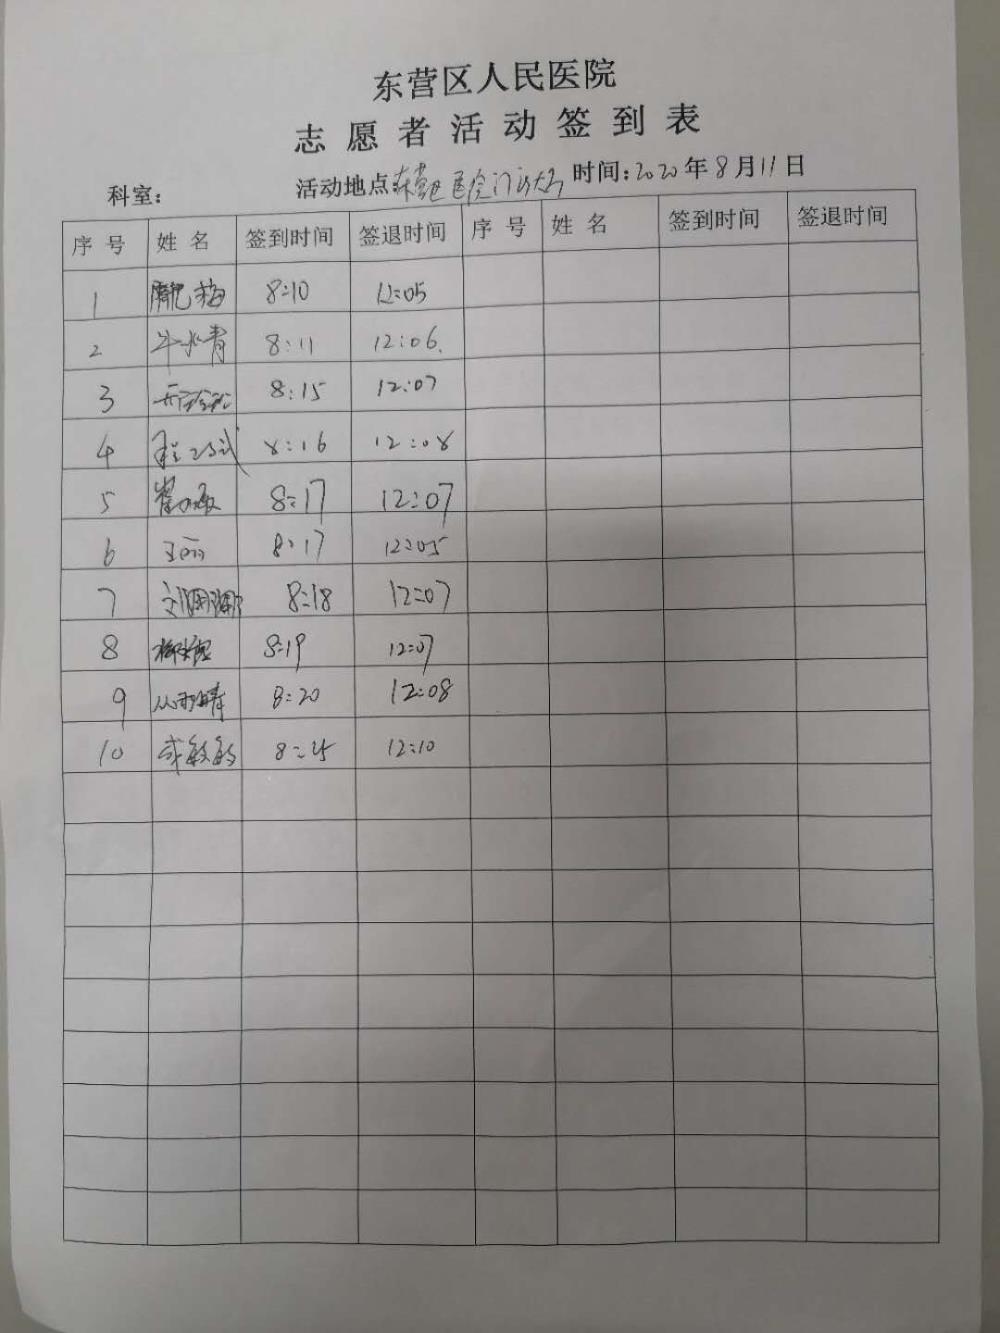 东营区人民医院
志愿者活动签到表
科室： 活动地点 东营区医院门诊大厅 时间:2020年8月11日
序号 姓名 签到时间 签退时间 序号 姓名 签到时间 签退时间
1 梅 8:10 12:05
2 牛水青 8:11 12:06
3 8:15 12:07
4 8:16 12:08
5 8:17 12:07
6 王丽 8:17 12:05
7 8:18 12:07
8 8:19 12:07
9 丛雨晴 8:20 12:08
10 成敏敏 8:25 12:10